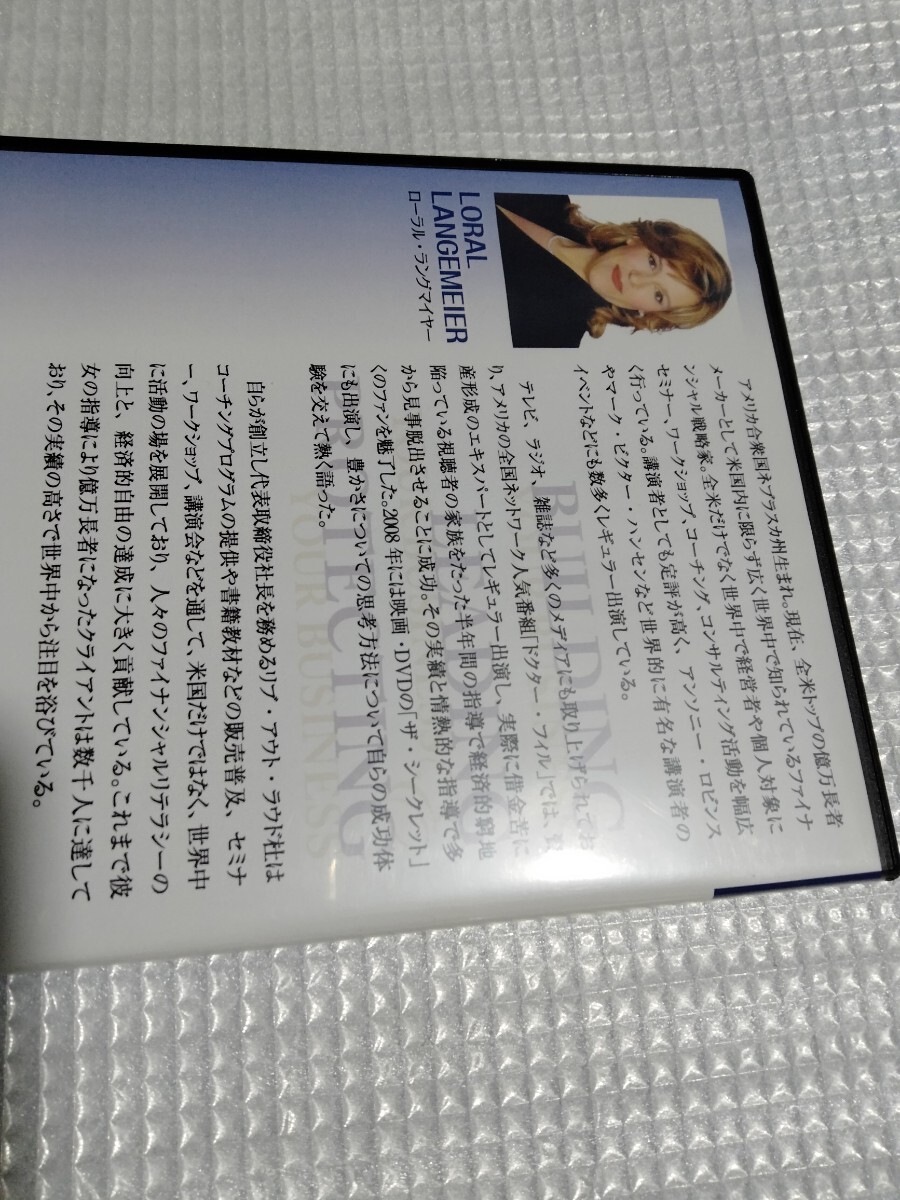 LORAL
LANGEMEIER
ローラル・ラングマイヤー
アメリカ合衆国ネブラスカ州生まれ。現在、全米トップの億万長者
メーカーとして米国内に限らず広く世界中で知られているファイナ
ンシャル戦略家。全米だけでなく世界中で経営者や個人対象に
セミナー、ワークショップ、コーチング、コンサルティング活動を幅広
く行っている。講演者としても定評が高く、アンソニー・ロビンス
やマーク・ビクター・ハンセンなど世界的に有名な講演者の
イベントなどにも数多くレギュラー出演している。
テレビ、ラジオ、雑誌など多くのメディアにも取り上げられてお
り、アメリカの全国ネットワーク人気番組「ドクター・フィル」では、資
産形成のエキスパートとしてレギュラー出演し、実際に借金苦に
陥っている視聴者の家族をたった半年間の指導で経済的窮地
から見事脱出させることに成功。その実績と情熱的な指導で多
くのファンを魅了した。2008年には映画・DVDの「ザ・シークレット」
にも出演し、豊かさについての思考方法について自らの成功体
験を交えて熱く語った。
自らが創立し代表取締役社長を務めるリブ・アウト・ラウド社は
コーチングプログラムの提供や書籍教材などの販売普及、セミナ
ー、ワークショップ、講演会などを通して、米国だけではなく、世界中
に活動の場を展開しており、人々のファイナンシャルリテラシーの
向上と、経済的自由の達成に大きく貢献している。これまで彼
女の指導により億万長者になったクライアントは数千人に達して
おり、その実績の高さで世界中から注目を浴びている。
BUILDING
LEADING
PROTECTING
YOUR BUSINESS